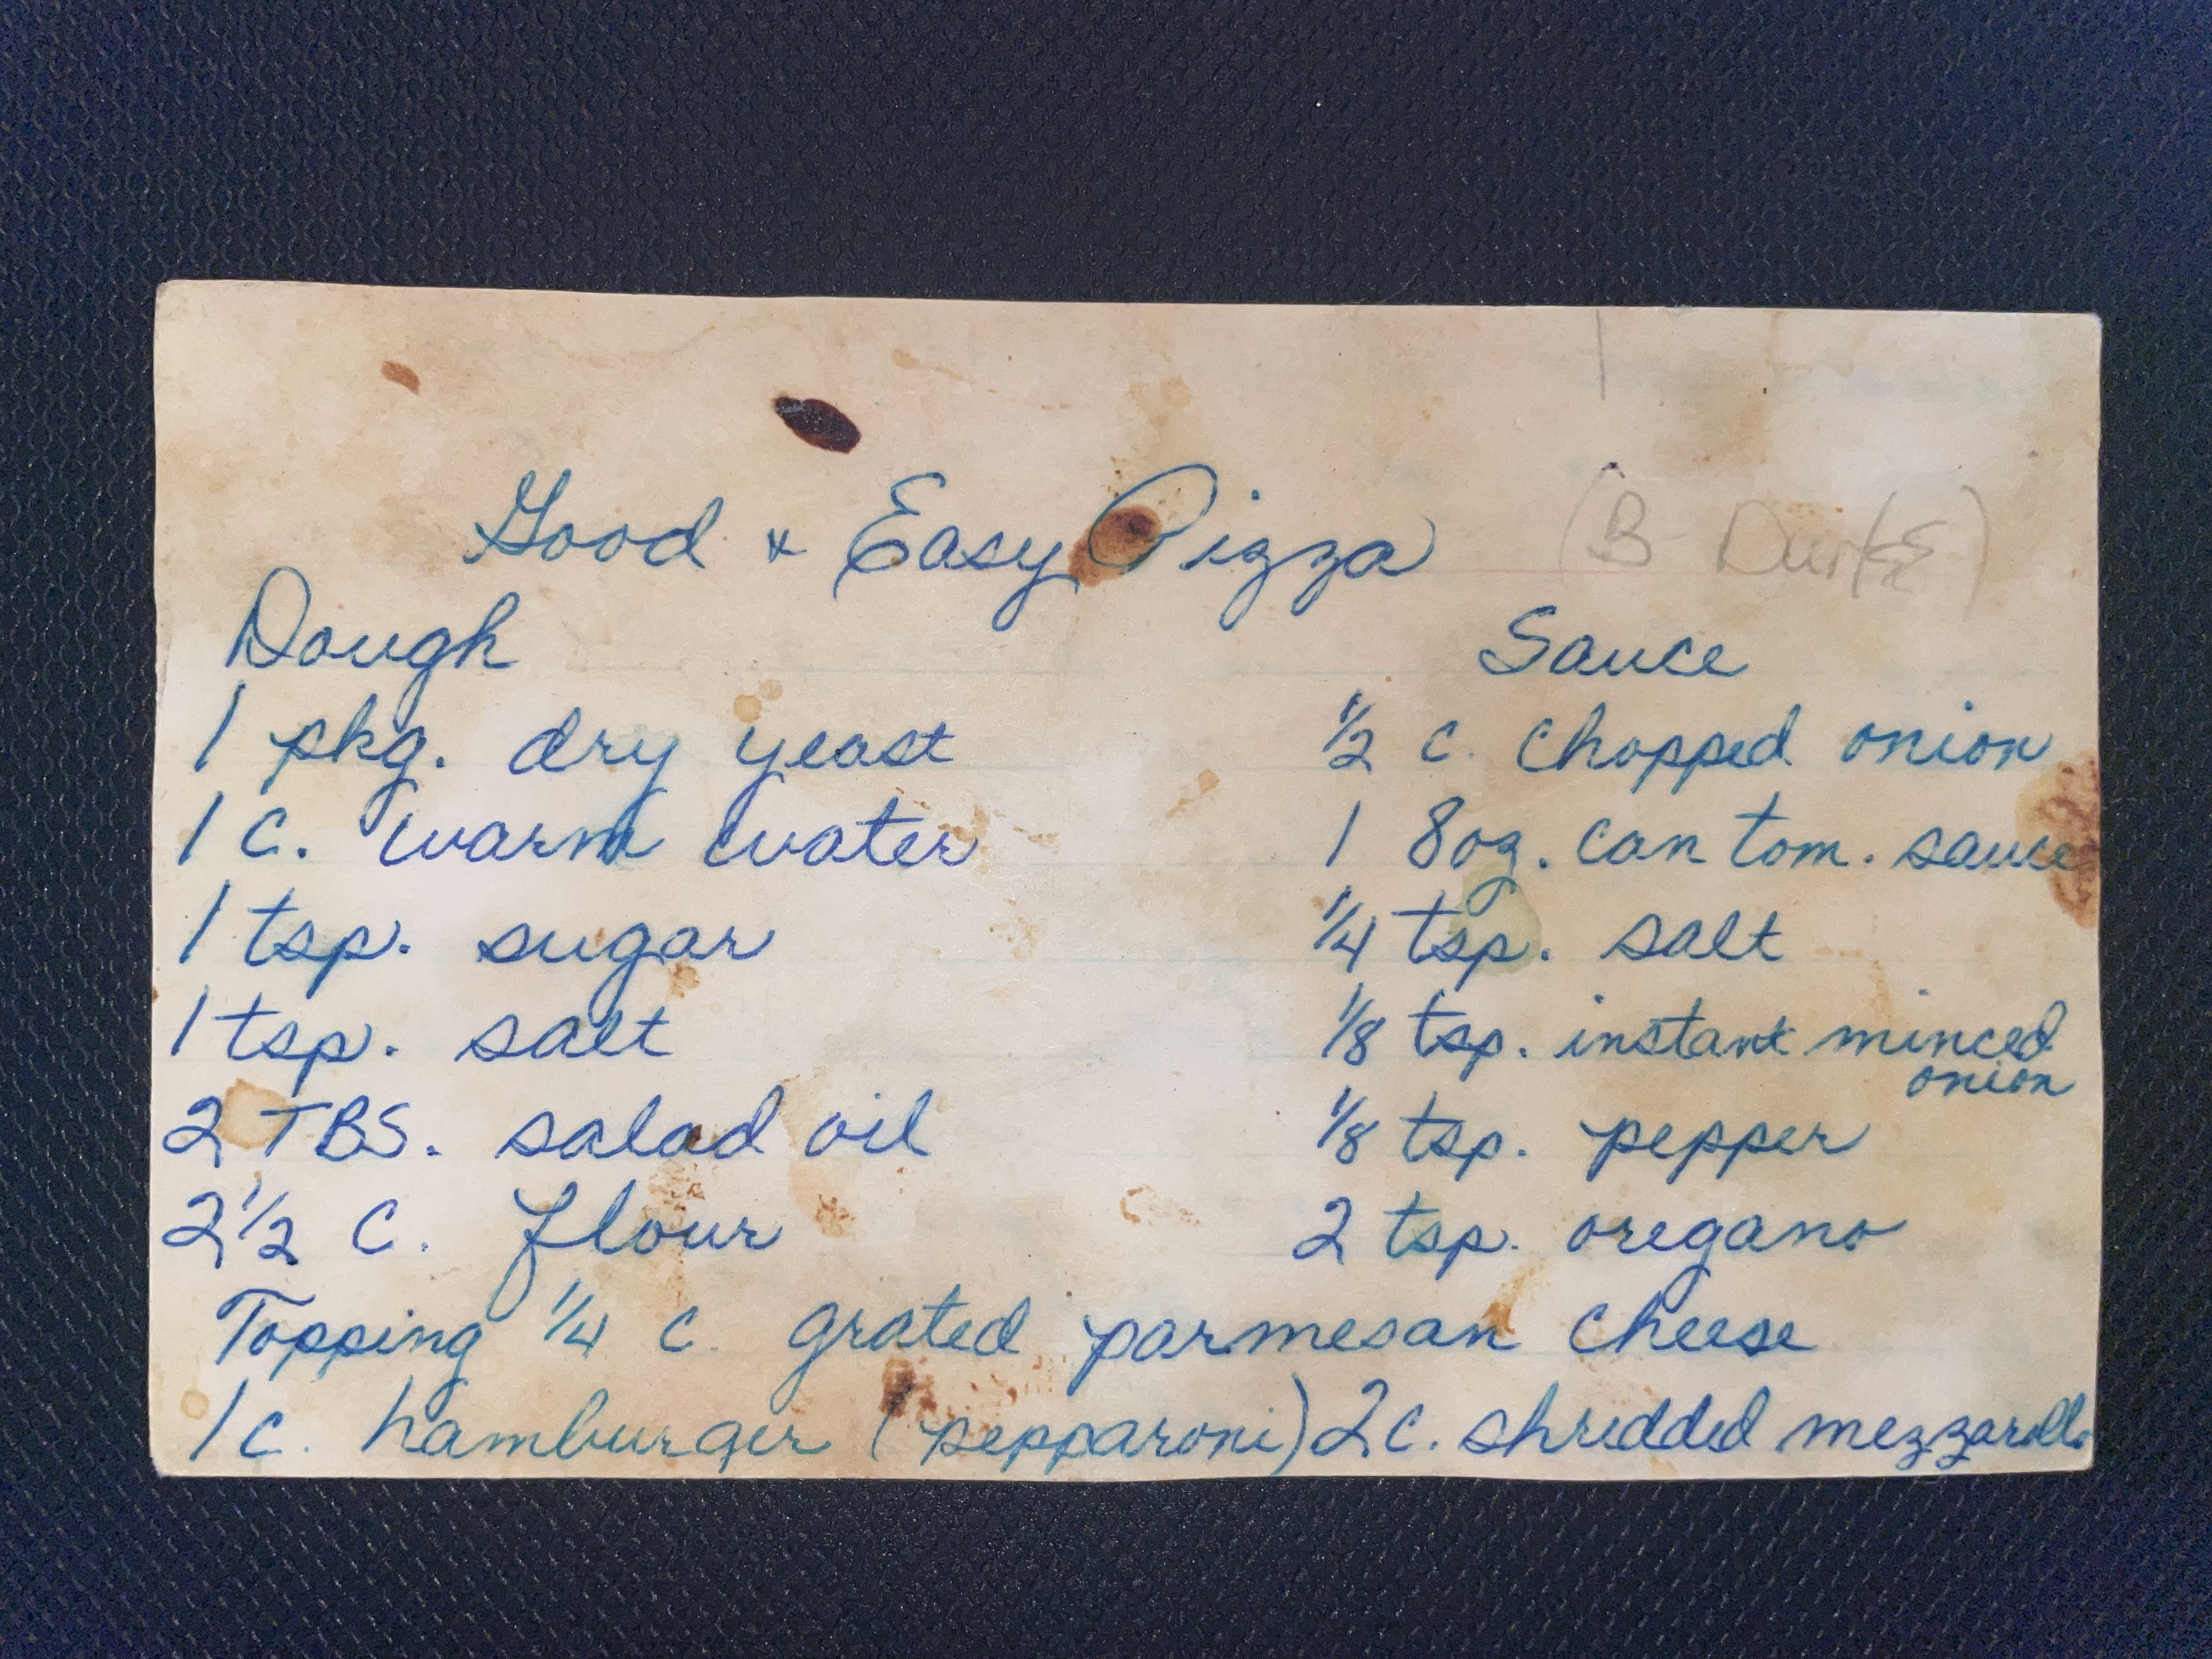 Good & Easy Pizza (B-
Dough
1 pkg. dry yeast
1 c. warm water
1 tsp. sugar
1 tsp. salt
2 TBS. salad oil
2 1/2 c. flour
Sauce
1/2 c. chopped onion
1 8oz. can tom. sauce
1/4 tsp. salt
1/8 tsp. instant minced
onion
1/8 tsp. pepper
2 tsp. oregano
Topping 1/4 c. grated parmesan cheese
1 c. hamburger (pepparoni) 2 c. shredded mezzarella